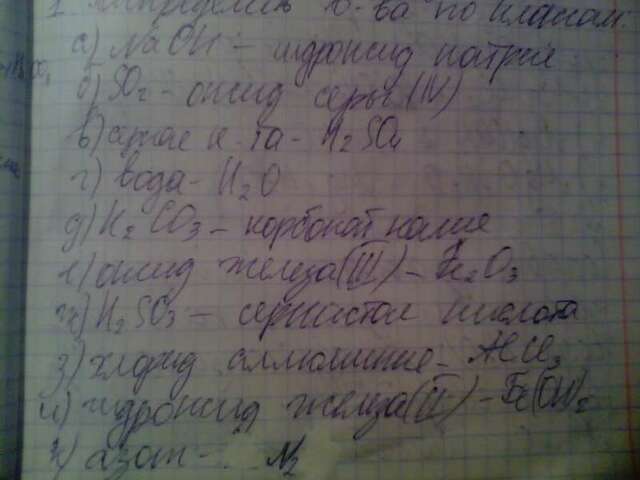 1. распределить в-ва по класам:
а) NaOH – гидроксид натрия
б) SO2 – оксид серы (IV)
в) серная к-та – H2SO4
г) вода – H2O
д) K2CO3 – корбонат калия
е) оксид железа (III) – Fe2O3
ж) H2SO3 – сернистая кислота
з) хлорид аллюминия – AlCl3
и) гидроксид железа (II) – Fe(OH)2
к) азот – N2